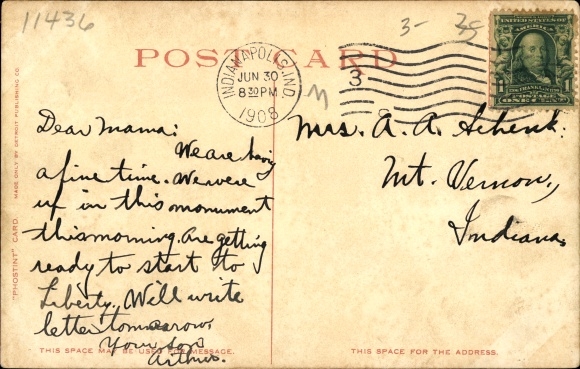 11436
3-
35
POST CARD
INDIANAPOLIS, IND.
JUN 30
8 30 PM
1908
3
UNITED STATES OF AMERICA
FRANKLIN
POSTAGE
1 ONE CENT 1
Dear Mama:
We are having
a fine time. We were
up in this monument
this morning. Are getting
ready to start to
Liberty. Will write
letter tomorrow.
Your son
Arthur.
Mrs. A. A. Schenk.
Mt. Vernon,
Indiana.
"PHOSTINT" CARD. MADE ONLY BY DETROIT PUBLISHING CO.
THIS SPACE MAY BE USED FOR MESSAGE.
THIS SPACE FOR THE ADDRESS.